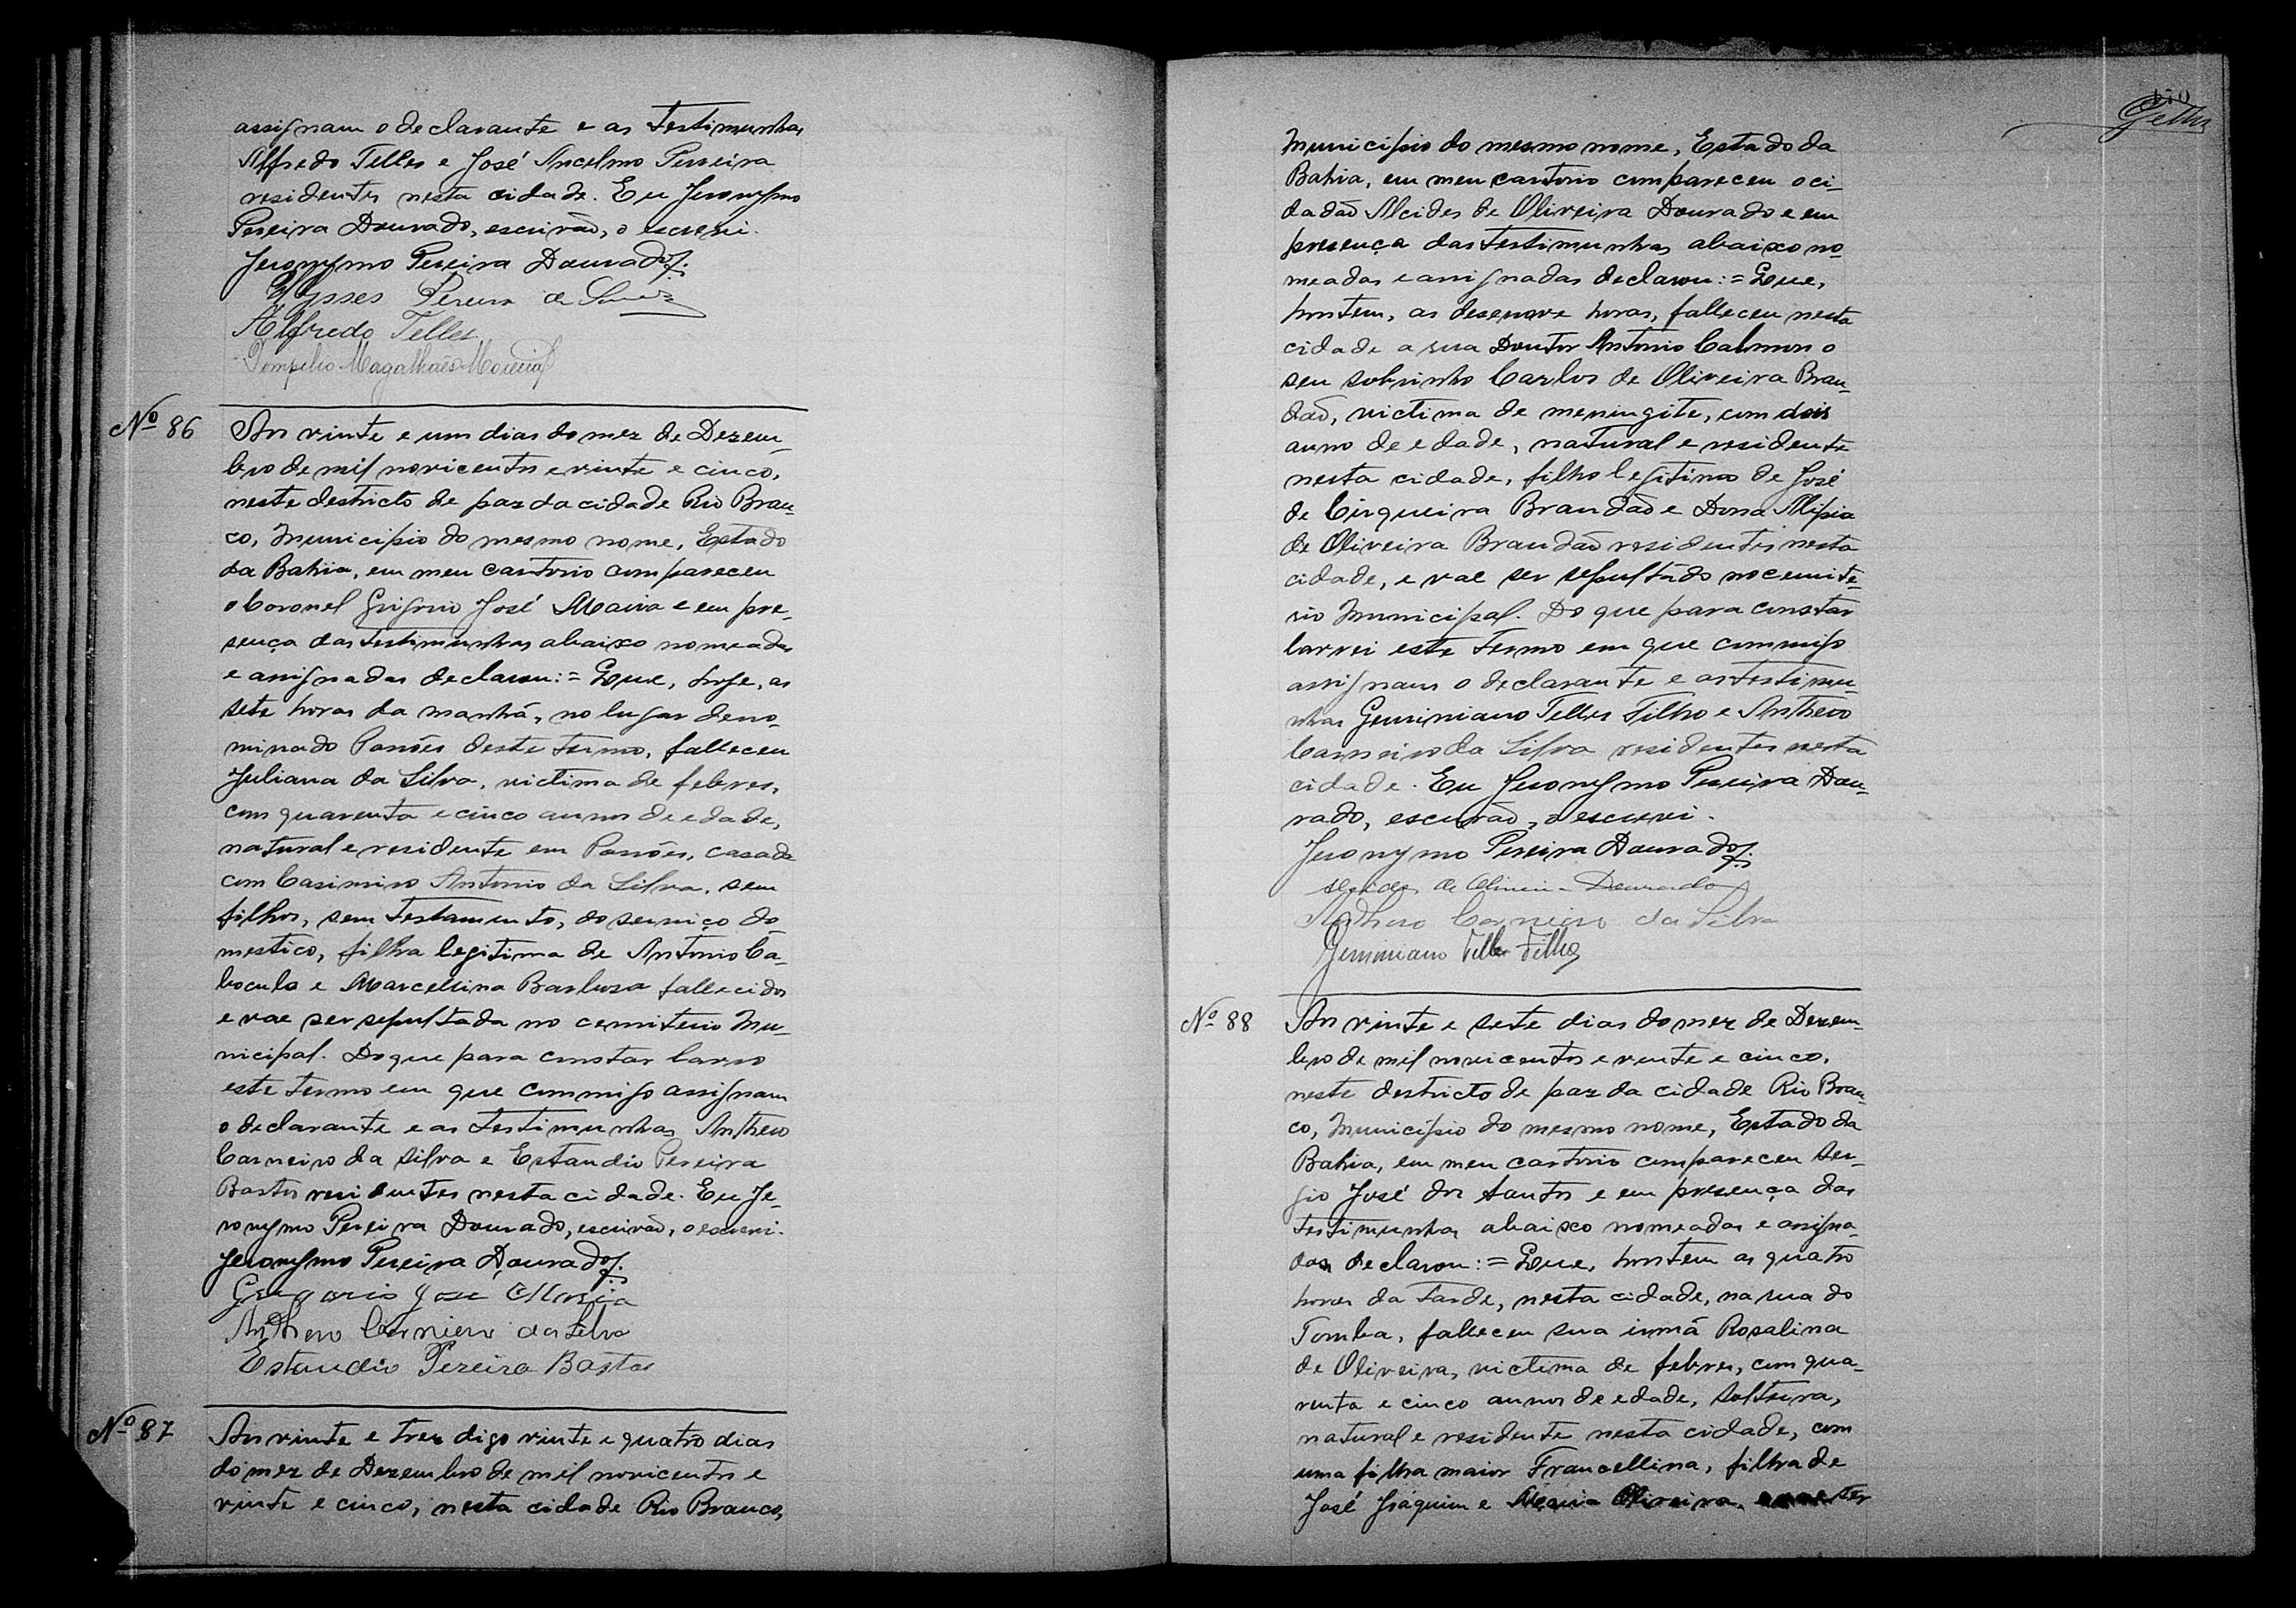 assignam o declarante e as testimunhas
Alfredo Telles e José Ancelmo Pereira
residentes nesta cidade. Eu Jeronymo
Pereira Dourado, escrivão, o escrevi.
Jeronymo Pereira Dourado
Ulysses Pereira de
Alfredo Telles
Pompilio Magalhães Moreira
Nº 86
Aos vinte e um dias do mez de Dezem-
bro de mil novicentos e vinte e cinco,
neste destricto de paz da cidade Rio Bran-
co, Municipio do mesmo nome, Estado
da Bahia, em meu cartorio compareceu
o Coronel Grigorio José Maciia e em pre-
sença das testimunhas abaixo nomeadas
e assignadas declarou:= Que, hoje, as
sete horas da manhã, no lugar deno-
minado Passões deste termo, falleceu
Juliana da Silva, victima de febres,
com quarenta e cinco annos de edade,
natural e residente em Passões, casada
com Casimiro Antonio da Silva, sem
filhos, sem testamento, do serviço do
mestico, filha legitima de Antonio Ca-
boculo e Marcellina Barbosa fallecidos
e vae ser sepultada no cemiterio Mu-
nicipal. Do que para constar lavro
este termo em que commigo assignam
o declarante e as testimunhas Anthero
Carneiro da Silva e Estandio Pereira
Bastos residentes nesta cidade. Eu Je-
ronymo Pereira Dourado, escrivão, o escrevi.
Jeronymo Pereira Dourado
Gregorio José
Anthero Carneiro da Silva
Estandio Pereira Bastos
Nº 87
Aos vinte e tres digo vinte e quatro dias
do mez de Dezembro de mil novicentos e
vinte e cinco, nesta cidade Rio Branco,
170
Telles
Municipio do mesmo nome, Estado da
Bahia, em meu cartorio compareceu o ci-
dadão Alcides de Oliveira Dourado e em
presença das testimunhas abaixo no-
meadas e assignadas declarou:= Que,
hontem, as desenove horas, falleceu nesta
cidade a rua Doutor Antonio Calmon o
seu sobrinho Carlos de Oliveira Bran-
dão, victima de meningite, com dois
anno de edade, natural e residente
nesta cidade, filho legitimo de José
de Cirqueira Brandão e Dona Alipia
de Oliveira Brandão residentes nesta
cidade, e vae ser sepultado no cemite-
rio Municipal. Do que para constar
lavrei este termo em que commigo
assignam o declarante e as testimu-
nhas Geminiano Telles Filho e Anthero
Carneiro da Silva residentes nesta
cidade. Eu Jeronymo Pereira Dou-
rado, escrivão, o escrevi.
Jeronymo Pereira Dourado
Alcides de Oliveira Dourado
Anthero Carneiro da Silva
Geminiano Telles Filho
Nº 88
Aos vinte e sete dias do mez de Dezem-
bro de mil novicentos e vinte e cinco,
neste destricto de paz da cidade Rio Bran-
co, Municipio do mesmo nome, Estado da
Bahia, em meu cartorio compareceu Ser-
gio José dos Santos e em presença das
testimunhas abaixo nomeadas e assigna-
das declarou:= Que, hontem as quatro
horas da tarde, nesta cidade, na rua do
Tomba, falleceu sua irmã Rosalina
de Oliveira, victima de febres, com qua-
renta e cinco annos de edade, solteira,
natural e residente nesta cidade, com
uma filha maior Francellina, filha de
José Joaquim e Maria Oliveira, e vae ser